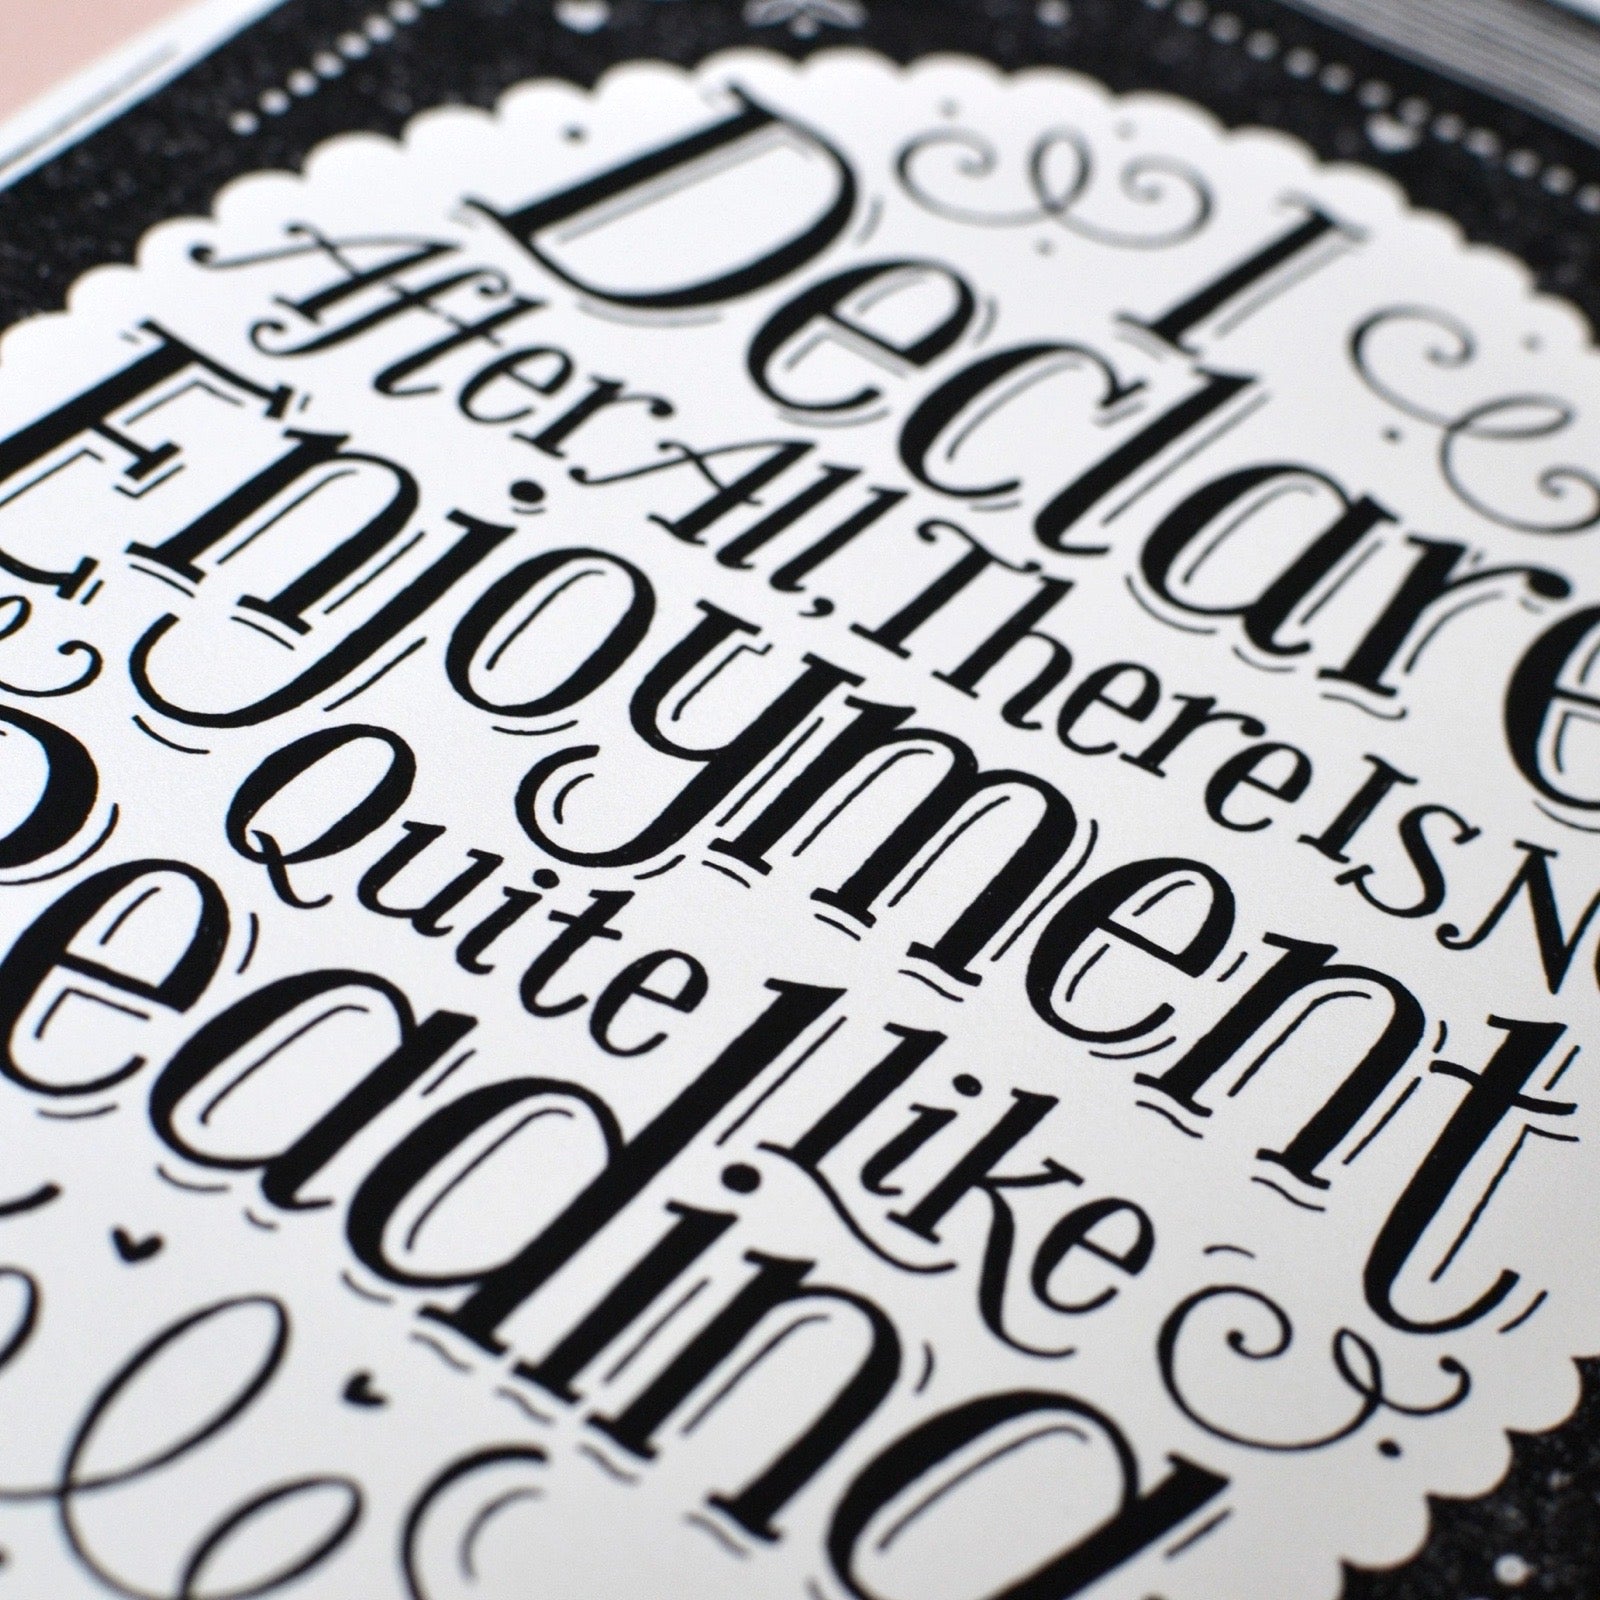 I
Declare
After All, There Is No
Enjoyment
Quite Like
Reading